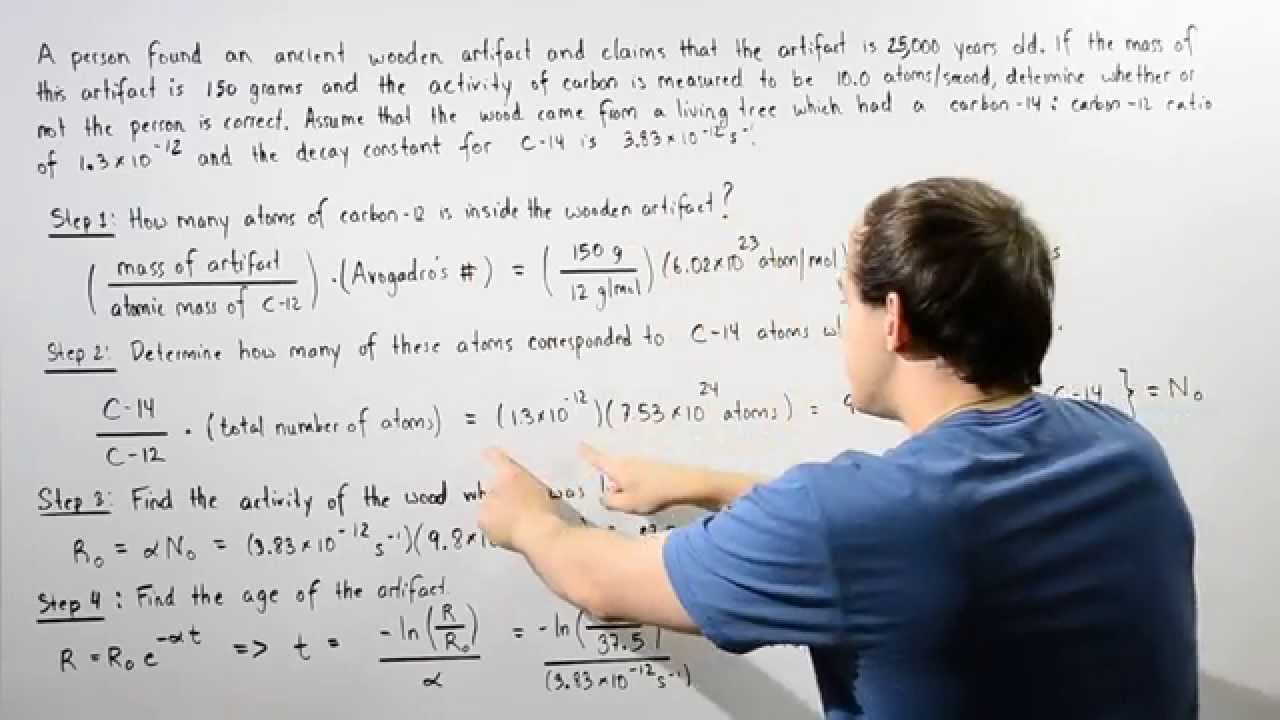 A person found an ancient wooden artifact and claims that the artifact is 25,000 years old. If the mass of
this artifact is 150 grams and the activity of carbon is measured to be 10.0 atoms/second, determine whether or
not the person is correct. Assume that the wood came from a living tree which had a carbon-14 : carbon-12 ratio
of 1.3×10⁻¹² and the decay constant for C-14 is 3.83×10⁻¹² s⁻¹.
Step 1: How many atoms of carbon-12 is inside the wooden artifact?
(mass of artifact / atomic mass of C-12) · (Avogadro's #) = (150 g / 12 g/mol)(6.02×10²³ atom/mol)
Step 2: Determine how many of these atoms corresponded to C-14 atoms
C-14 / C-12 · (total number of atoms) = (1.3×10⁻¹²)(7.53×10²⁴ atoms) = C-14 } = N₀
Step 3: Find the activity of the wood was
R₀ = αN₀ = (3.83×10⁻¹² s⁻¹)(9.8×10
Step 4: Find the age of the artifact.
R = R₀e^(-αt) => t = -ln(R/R₀) / α = -ln( / 37.5) / (3.83×10⁻¹² s⁻¹)